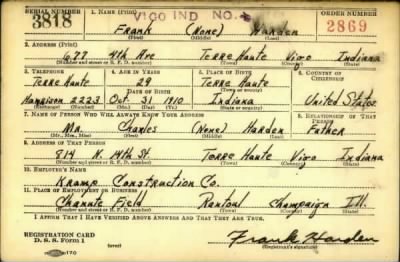 SERIAL NUMBER 1. NAME (Print) VIGO IND NO. ORDER NUMBER
3818 Frank (None) Harden 2869
(First) (Middle) (Last)
2. ADDRESS (Print)
677 4th Ave Terre Haute Vigo Indiana
(Number and street or R. F. D. number) (Town) (County) (State)
3. TELEPHONE 4. AGE IN YEARS 5. PLACE OF BIRTH 6. COUNTRY OF CITIZENSHIP
Terre Haute 29 Terre Haute
DATE OF BIRTH (Town or county)
Harrison 2223 Oct. 31 1910 Indiana United States
(Exchange) (Number) (Mo.) (Day) (Yr.) (State or country)
7. NAME OF PERSON WHO WILL ALWAYS KNOW YOUR ADDRESS 8. RELATIONSHIP OF THAT PERSON
Mr. Charles (None) Harden Father
(Mr., Mrs., Miss) (First) (Middle) (Last)
9. ADDRESS OF THAT PERSON
814 N. 14th St Terre Haute Vigo Indiana
(Number and street or R. F. D. number) (Town) (County) (State)
10. EMPLOYER'S NAME
Kramp Construction Co.
11. PLACE OF EMPLOYMENT OR BUSINESS
Chanute Field Rantoul Champaign Ill.
(Number and street or R. F. D. number) (Town) (County) (State)
I AFFIRM THAT I HAVE VERIFIED ABOVE ANSWERS AND THAT THEY ARE TRUE.
REGISTRATION CARD
D. S. S. Form 1 Frank Harden
(Registrant's signature)